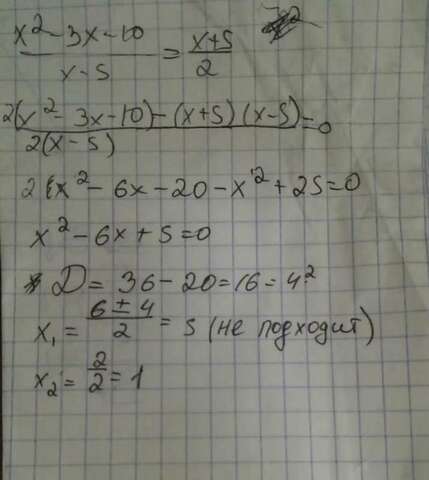 x² - 3x - 10 / x - 5 = x+5 / 2
2(x² - 3x - 10) - (x+5)(x-5) / 2(x-5) = 0
2x² - 6x - 20 - x² + 25 = 0
x² - 6x + 5 = 0
D = 36 - 20 = 16 = 4²
x₁ = 6 ± 4 / 2 = 5 (не подходит)
x₂ = 2 / 2 = 1